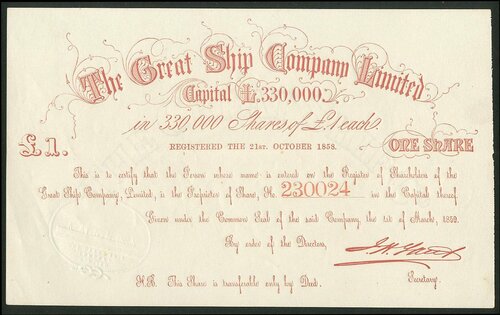 The Great Ship Company Limited
Capital £.330,000.
in 330,000 Shares of £.1 each.
REGISTERED THE 21ST. OCTOBER 1858.
£1. ONE SHARE
This is to certify that the Person whose name is entered on the Register of Shareholders of the
Great Ship Company, Limited, is the Proprietor of Share, No. 230024 in the Capital thereof.
Given under the Common Seal of the said Company, the 1st of March, 1859.
By order of the Directors,
Secretary.
N.B. This Share is transferable only by Deed.